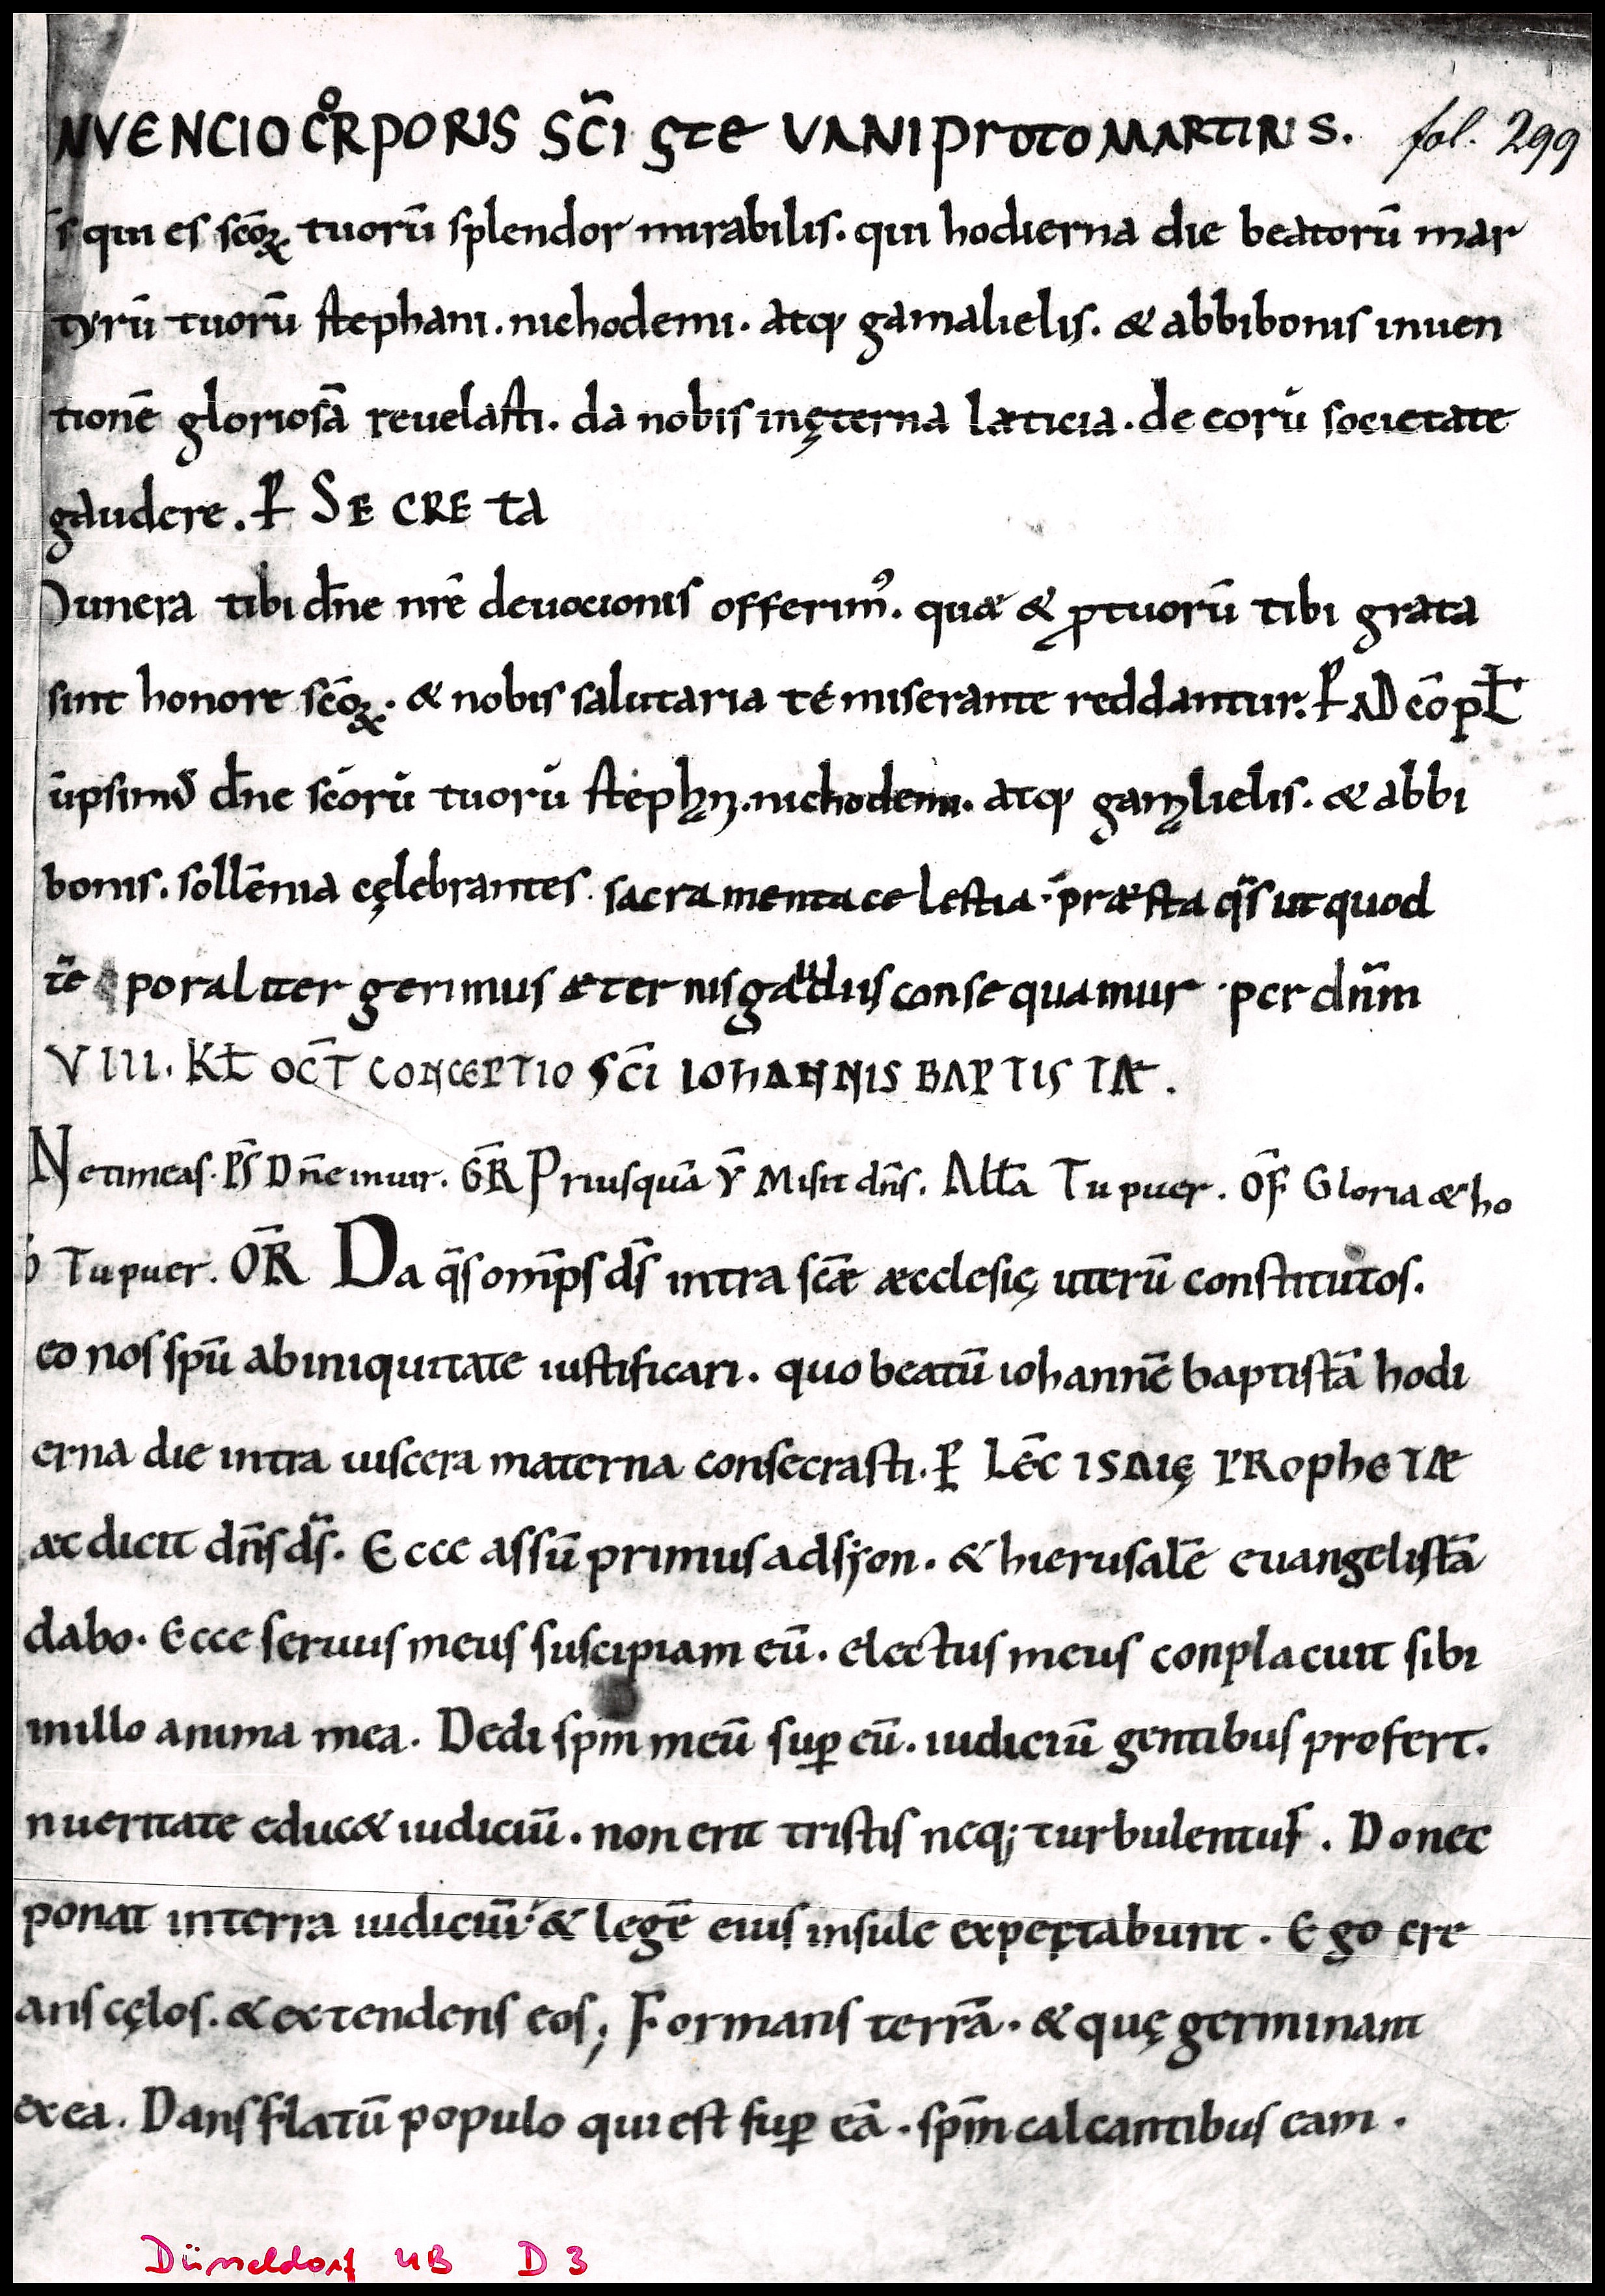 NVENCIO CoRPORIS SC̄I STEVANI PROTOMARTIRIS. fol. 299
s qui es sc̄oꝝ tuorū splendor mirabilis. qui hodierna die beatorū mar
tyrū tuorū stephani. nichodemi. atq; gamalielis. & abbibonis inuen
tionē gloriosā reuelasti. da nobis in ęterna læticia. de eorū societate
gaudere. P̵ SECRETA
unera tibi dn̄e nr̄e deuocionis offerimꝰ. quæ & ꝓ tuorū tibi grata
sint honore sc̄oꝝ. & nobis salutaria té miserante reddantur. P̵ AD CŌPŁ
ūpsimꝰ dn̄e sc̄orū tuorū stephani. nichodemi. atq; gamalielis. & abbi
bonis. sollēnia cęlebrantes. sacramenta celestia. præsta qs̄ ut quod
tēporaliter gerimus æternis gaudiis consequamur. per dn̄m
VIII. KŁ OCT̄ CONCEPTIO SC̄I IOHANNIS BAPTISTÆ.
Ne timeas. PS̄ Dn̄e in uir. GR̄ Priusquā V̄ Misit dn̄s. Alła Tu puer. OF̄ Gloria & ho
Tu puer. OR̄ Da qs̄ omīps ds̄ intra scǣ æcclesię uterū constitutos.
eo nos spū ab iniquitate iustificari. quo beatū iohannē baptistā hodi
erna die intra uiscera materna consecrasti. P̵ LEC̄ ISAIĘ PROPHETÆ
æc dicit dn̄s ds̄. Ecce assū primus ad syon. & hierusalē euangelistā
dabo. Ecce seruus meus suscipiam eū. electus meus conplacuit sibi
in illo anima mea. Dedi spm̄ meū suꝑ eū. iudiciū gentibus profert.
n ueritate educ& iudiciū. non erit tristis neq; turbulentus. Donec
ponat in terra iudiciū. & legē eius insule expęctabunt. Ego cre
ans cęlos. & extendens eos; Formans terrā. & quę germinant
ex ea. Dans flatū populo qui est suꝑ eā. spm̄ calcantibus eam.
Düsseldorf UB D 3